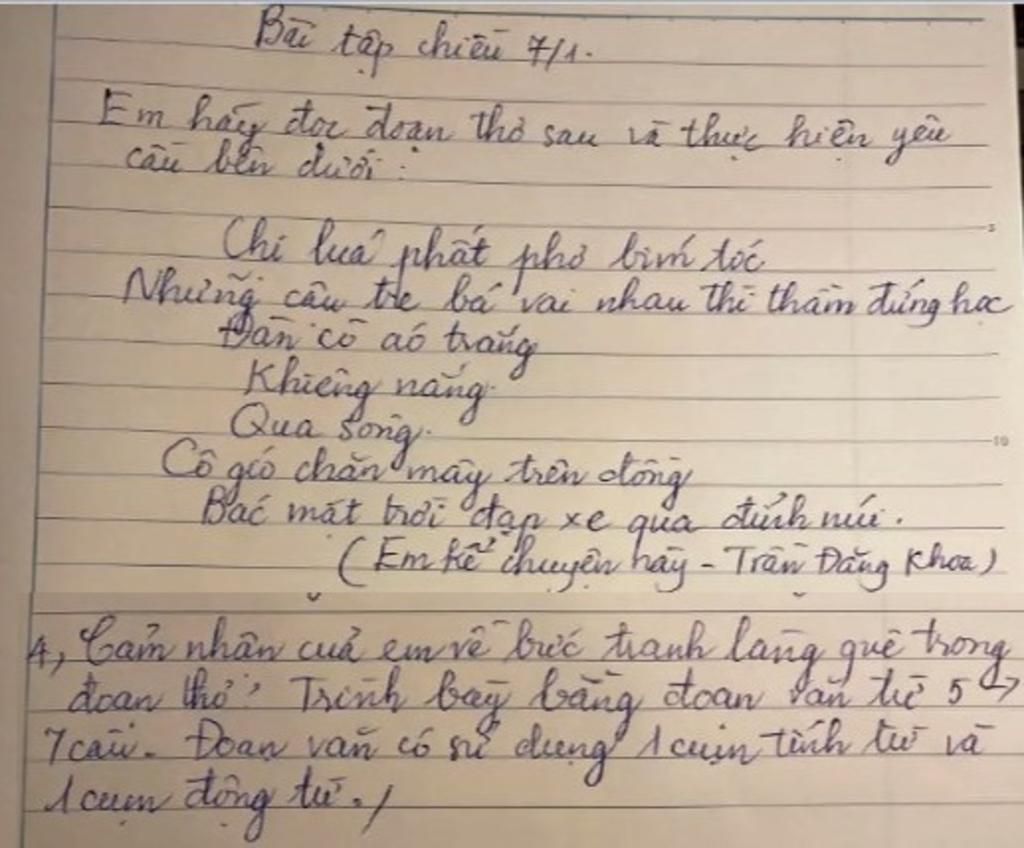 Bài tập chiều 7/1.
Em hãy đọc đoạn thơ sau và thực hiện yêu
cầu bên dưới:
Chị lúa phất phơ bím tóc
Những cậu tre bá vai nhau thì thầm đứng học
Đàn cò áo trắng
Khiêng nắng
Qua sông.
Cô gió chăn mây trên đồng
Bác mặt trời đạp xe qua đỉnh núi.
(Em kể chuyện này - Trần Đăng Khoa)
4, Cảm nhận của em về bức tranh làng quê trong
đoạn thơ? Trình bày bằng đoạn văn từ 5 →
7 câu. Đoạn văn có sử dụng 1 cụm tính từ và
1 cụm động từ./
5
10